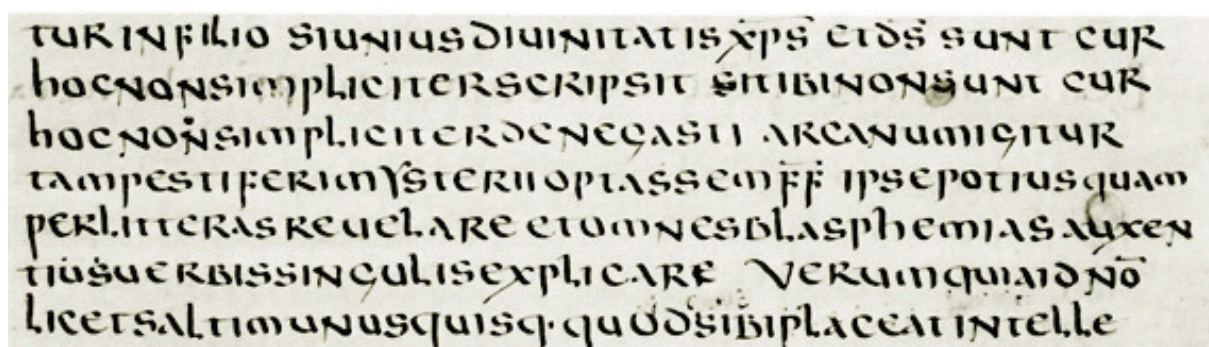 TUR IN FILIO SIUNIUS DIUINITATIS XP̄S ET D̄S SUNT CUR
HOC NON SIMPLICITER SCRIPSIT SI TIBI NON SUNT CUR
HOC NON SIMPLICITER DENEGASTI ARCANUM IGITUR
TAM PESTIFERI MYSTERII OPTASSEM F̄F̄ IPSE POTIUS QUAM
PER LITTERAS REUELARE ET OMNES BLASPHEMIAS AUXEN
TII SUE UERBIS SINGULIS EXPLICARE VERUM QUIA ID NŌ
LICET SALTIM UNUSQUISQ· QUOD SIBI PLACEAT INTELLE